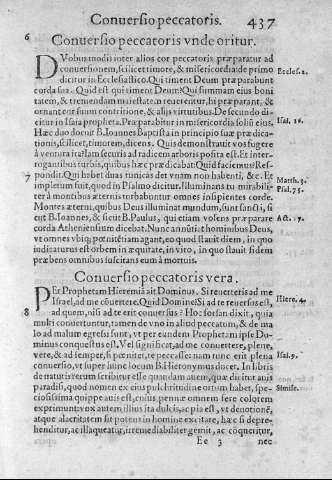 Conuersio peccatoris. 437
6 Conuersio peccatoris vnde oritur.
DVobus modis inter alios cor peccatoris præparatur ad
conuersionem, scilicet timore, & misericordia: de primo
dicitur in Ecclesiastico. Qui timent Deum præparabunt Eccles. 2.
corda sua. Quid est qui timent Deum? Qui summam eius boni
tatem, & tremendam maiestatem reuerentur, hi præparant, &
ornant cor suum contritione, & alijs virtutibus. De secundo di-
citur in Isaia propheta. Præparabitur in misericordia solij eius. Isai. 16.
Hæc duo docuit B. Ioannes Baptista in principio suæ prædica-
tionis, scilicet, timorem, dicens. Quis demonstrauit vos fugere
à ventura ira? Iam securis ad radicem arboris posita est. Et inter-
rogantibus turbis, quibus hæc prædicabat: Quid faciemus? Res-
pondit. Qui habet duas tunicas det vnam non habenti, &c. Et Matth. 3.
7 impletum fuit, quod in Psalmo dicitur. Illuminans tu mirabili- Psal. 75.
ter à montibus æternis turbabuntur omnes insipientes corde.
Montes æterni, quibus Deus illuminat mundum, sunt sancti, si
cut B. Ioannes, & sicut B. Paulus, qui etiam volens præparare Act. 17.
corda Atheniensium dicebat. Nunc annūtiat hominibus Deus,
vt omnes vbique pœnitētiam agant, eo quod statuit diem, in quo
iudicaturus est orbem in æquitate, in viro, in quo statuit fidem
præbens omnibus suscitans eum à mortuis.
Conuersio peccatoris vera.
PEr Prophetam Hieremiā ait Dominus. Si reuerteris ad me
Israel, ad me cōuertere. Quid Domine? Si ad te reuersus est, Hiere. 4.
8 ad quem, nisi ad te erit conuersus? Hoc forsan dixit, quia
multi conuertuntur, tamen de vno in aliud peccatum, & de ma
lo ad malum egressi sunt, vt per eundem Prophetam ipse Do-
minus conquestus est. Vel significat, ad me conuertere, plene,
vere, & ad semper, si pœnitet, te peccasse: nam tunc erit plena Isai. 9.
conuersio, vt super hunc locum B. Hieronymus docet. In libris
de naturis rerum scribitur esse quandam auem, quæ dicitur auis
paradisi, quod nomen ex eius pulchritudine ortum habet, spe- Simile.
ciosissima quippe auis est, cuius pennæ omnem fere colorem
exprimunt: vox autem illius ita dulcis, ac pia est, vt deuotionē,
atque alacritatem sit potens in homine excitare, hæc si depre-
henditur, ac illaqueatur, irremediabiliter gemit, ac cōqueritur,
Ee 3 nec